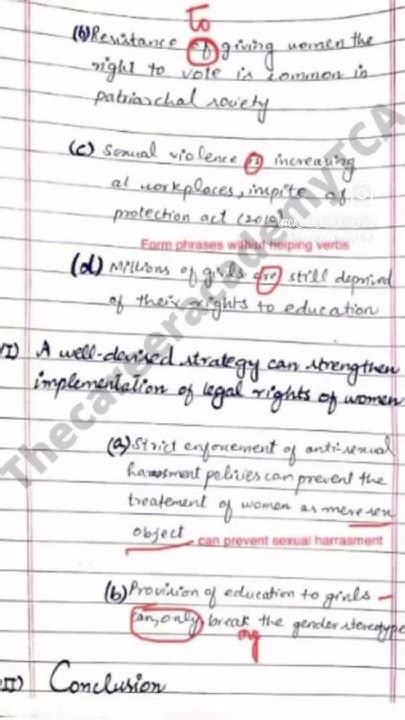 To
(b) Resistance of giving women the
right to vote is common in
patriarchal society
(c) Sexual violence is increasing
at workplaces, inspite of
protection act (2010)
Form phrases withut helping verbs
(d) Millions of girls are still deprived
of their rights to education
VI) A well-devised strategy can strengthen
implementation of legal rights of women
(a) Strict enforcement of anti-sexual
harassment policies can prevent the
treatement of women as mere sex
object
can prevent sexual harrasment
(b) Provision of education to girls
can, only, break the gender stereotype
ng
II) Conclusion
ThecareeracademyTCA